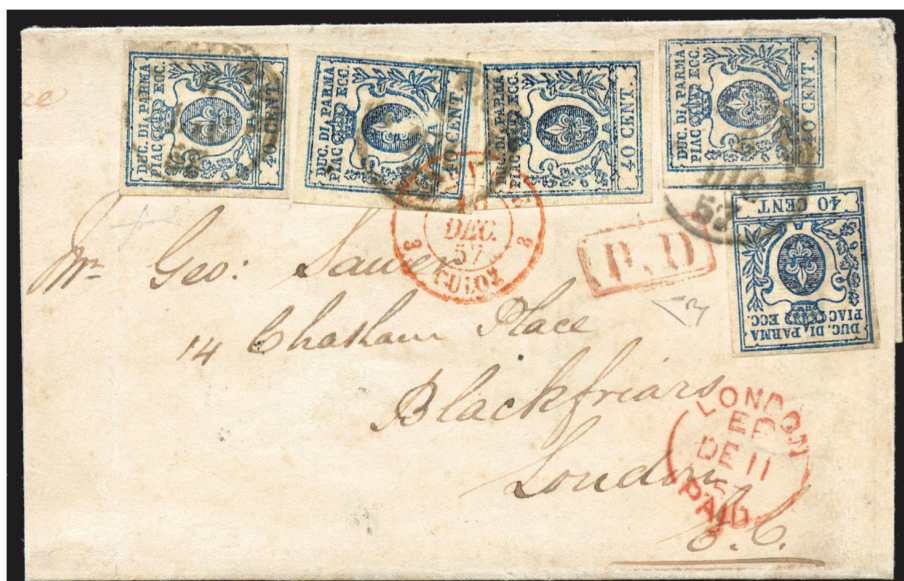 DUC. DI PARMA
PIAC ECC.
40 CENT.
DUC. DI PARMA
PIAC ECC.
40 CENT.
DUC. DI PARMA
PIAC ECC.
40 CENT.
DUC. DI PARMA
PIAC ECC.
40 CENT.
DUC. DI PARMA
PIAC ECC.
40 CENT
3 DEC. 3
57
CULOZ
P.D
Mr. Geo: Sawer
14 Chatham Place
Blackfriars
London
E.C.
LONDON
EP
DE 11
57
PAID